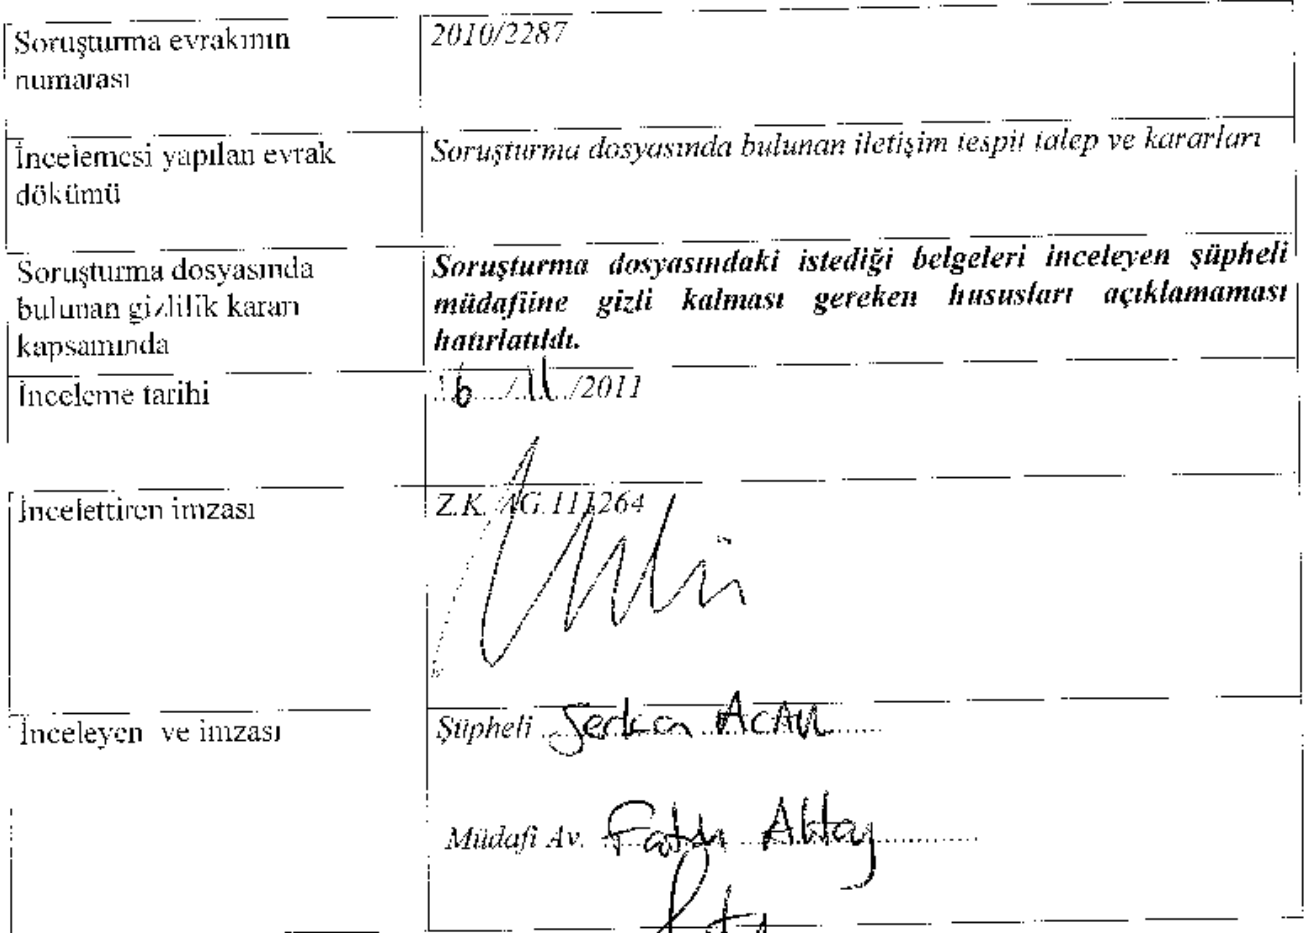 Soruşturma evrakının
numarası
2010/2287
İncelemesi yapılan evrak
dökümü
Soruşturma dosyasında bulunan iletişim tespit talep ve kararları
Soruşturma dosyasında
bulunan gizlilik kararı
kapsamında
Soruşturma dosyasındaki istediği belgeleri inceleyen şüpheli
müdafiine gizli kalması gereken hususları açıklamaması
hatırlatıldı.
İnceleme tarihi
16/11/2011
İncelettiren imzası
Z.K. AG.111264
İnceleyen ve imzası
Şüpheli Serkan ACAR
Müdafi Av. Fatih